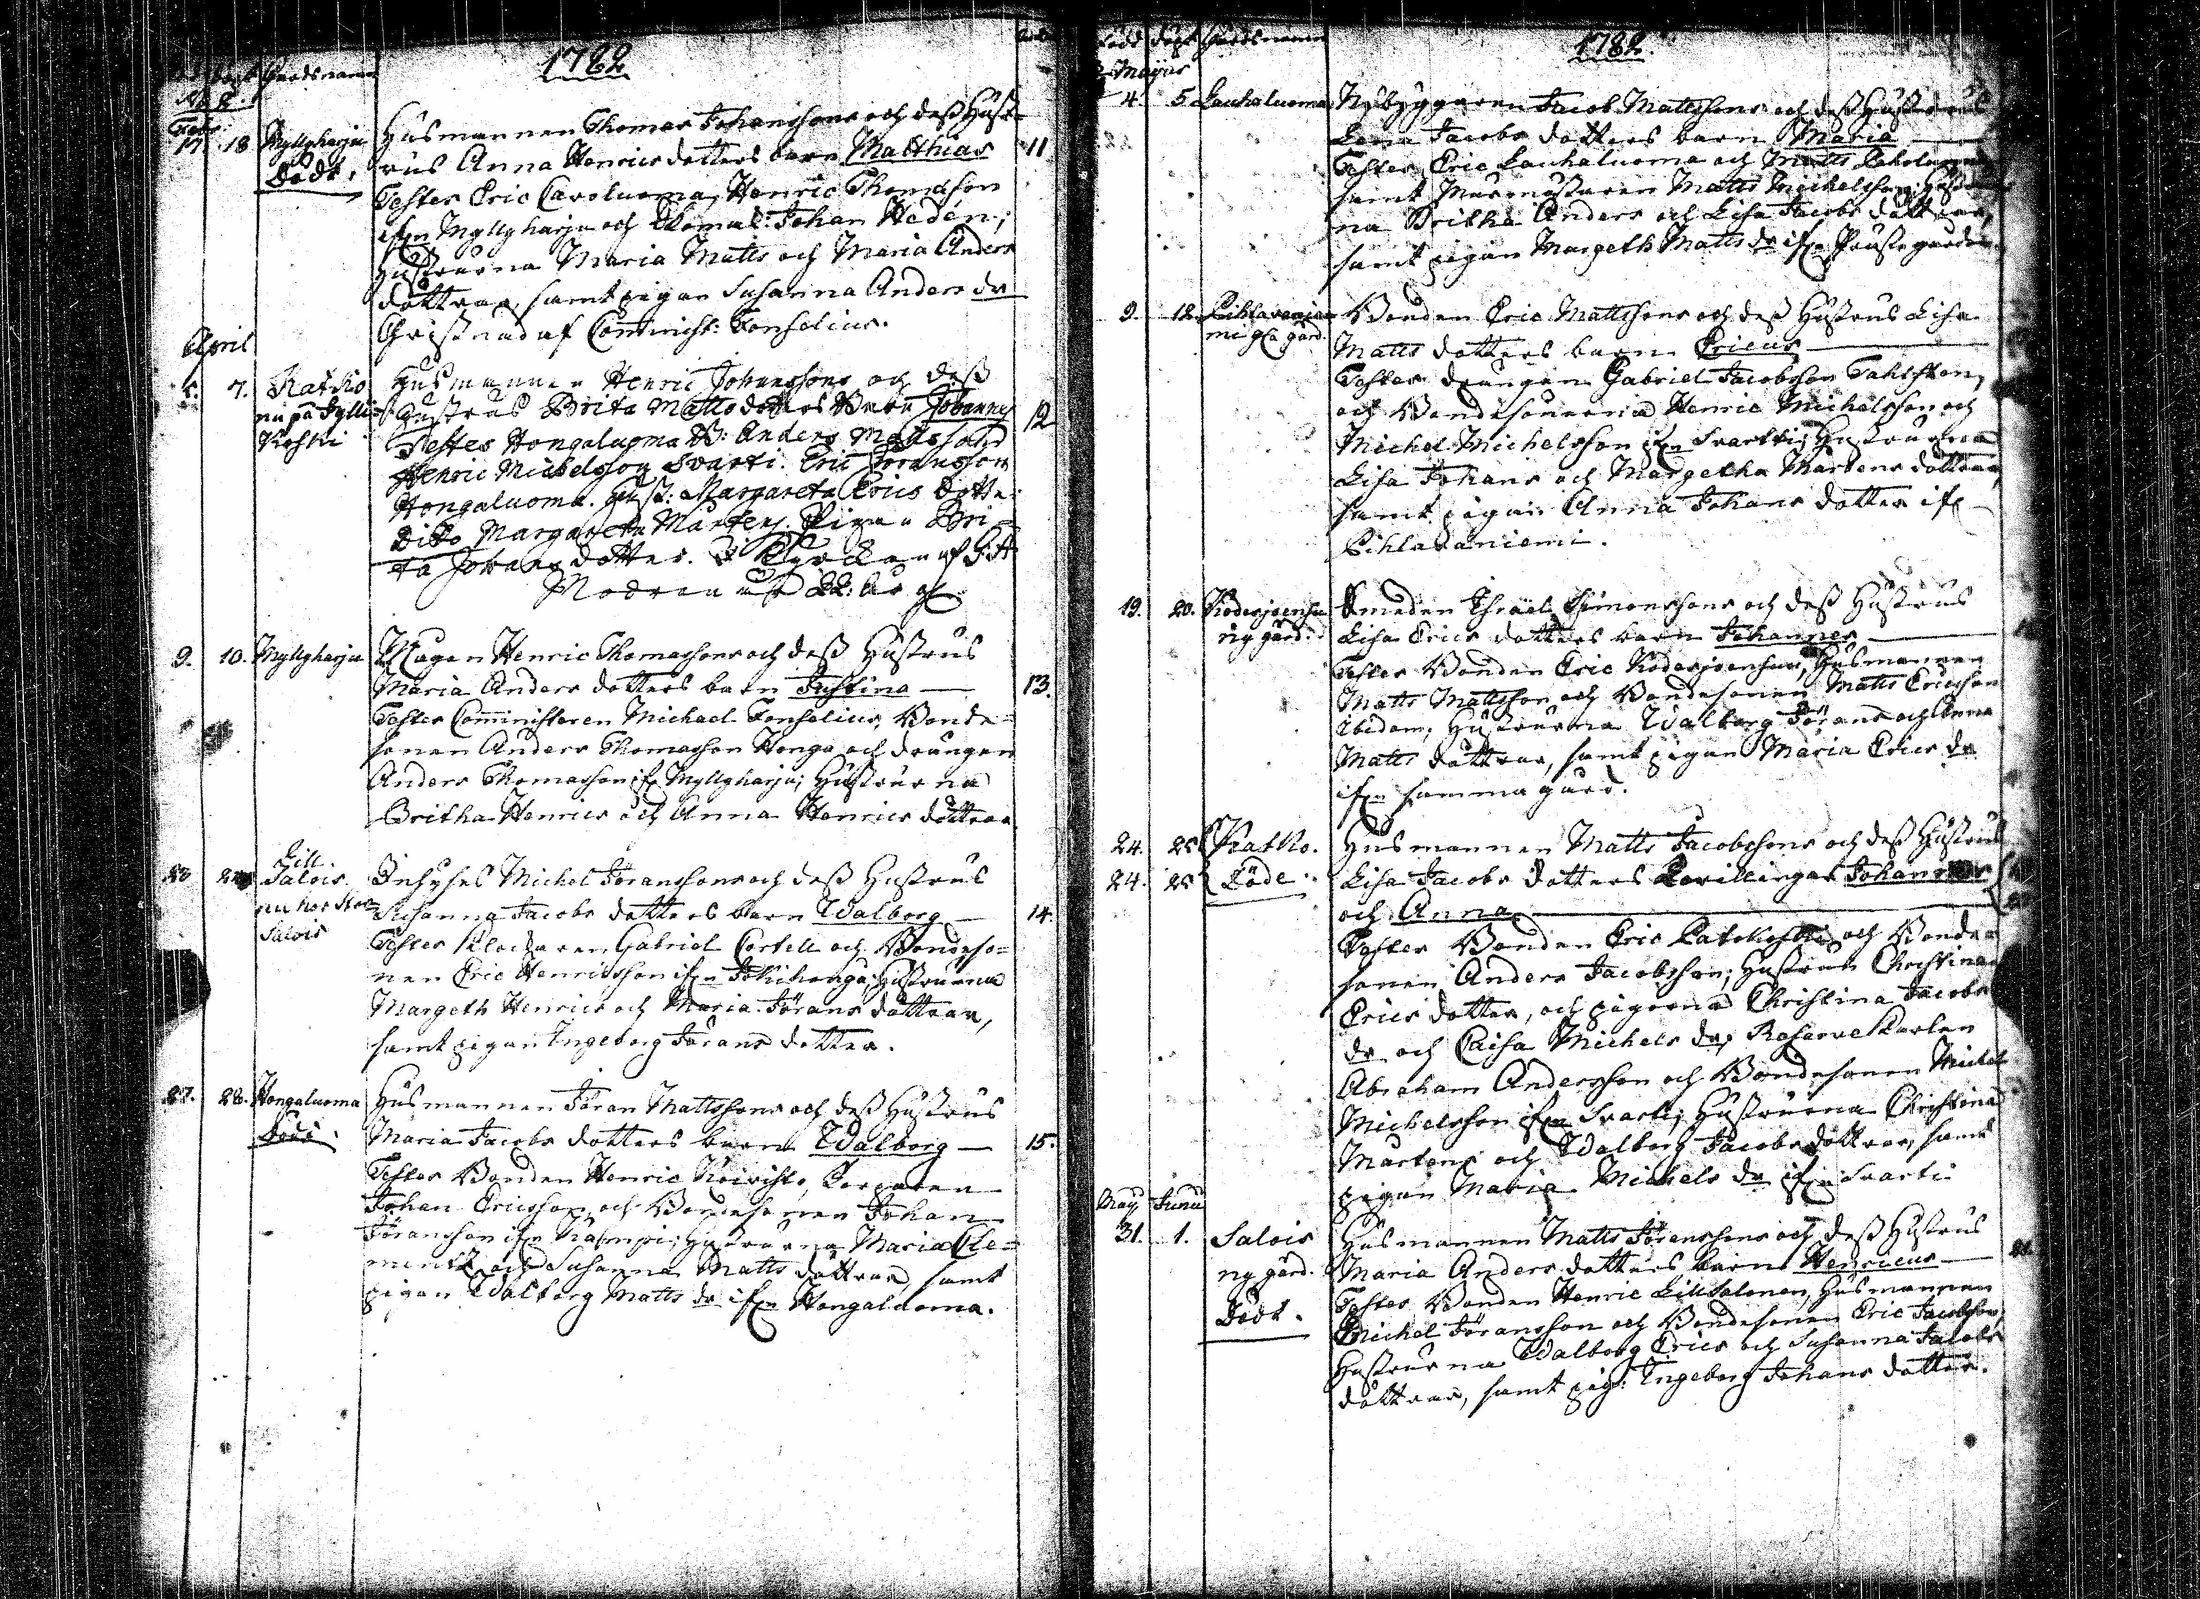 1782
dopt Gårdsnamn
Febr:
17. 18 Myllyharju
Husmannen Thomas Johanssons och dess Hust-
rus Anna Henricsdotters barn Matthias 11
Dödt.
Testes Eric Caroluoma, Henric Thomasson
ifrn Myllyharju och Johan Hedén;
Hustrurna Maria Matts och Maria Anders
döttrar, samt pigan Susanna Anders dr
Christnad af Comminist: Fonselius.
April
5. 7. Katko
nu på Jylli
Koski
Husmannen Henric Johanssons och dess
Hustrus Brita Mattsdotters Barn Johannes 12
Testes Hongaluoma B: Anders Mattsson
Henric Michelsson Svarti. Eric Göransson
Hongaluoma. Hust: Margareta Erics Dotter
Dito Margareta Mårtens. Pigan Bri-
ta Johans dotter.
Modren 22: år gl
9. 10. Myllyharju
Mågen Henric Thomassons och dess Hustrus
Maria Anders dotters barn Justina 13.
Testes Comministeren Michael Fonselius, Bonde-
sonen Anders Thomasson Honga och drängen
Anders Thomasson ifrn Myllyharju; Hustrurna
Britha Henrics och Anna Henrics döttrar
Lill
Salois
nu hos Stor
Salois
Inhyses Michel Jöranssons och dess Hustrus
Susanna Jacobs dotters barn Walborg 14.
Testes Klockaren Gabriel Cortell och Bondeso-
nen Eric Henricsson ifrn Jokihonga; Hustrurna
Margeth Henrics och Maria Jörans döttrar,
samt pigan Ingeborg Jörans dotter.
27. 28. Hongaluoma
Död.
Husmannen Jöran Mattssons och dess Hustrus
Maria Jacobs dotters barn Walborg 15.
Testes Bonden Henric Koivisto,
Johan Ericsson och Bondesonen Johan
Jöransson ifrn Hustrurna Maria Cle-
ments och Susanna Matts döttrar, samt
pigan Walborg Matts dr ifrn Hongaluoma.
1782.
Född döpt Gårdsnamn
Majus
4. 5. Lauhaluoma
Nybyggaren Jacob Mattssons och dess Hustrus
Lena Jacobs dotters barn Maria
Testes Eric Lauhaluoma och Matts
samt Murmästaren Matts Michelsson; Hustrur-
na Britha Anders och Lisa Jacobs döttrar,
samt pigan Margeth Matts dr ifrn Prästegården
9. 12. Pihlavanie-
mi gla gård.
Bonden Eric Mattssons och dess Hustrus Lisa
Matts dotters barn Ericus
Testes drängen Gabriel Jacobsson
och Bondesönerna Henric Michelsson och
Michel Michelsson ifrn Svartti; Hustrurna
Lisa Johans och Margetha Mårtens döttrar,
samt pigan Anna Johans dotter ifr
Pihlavaniemi.
19. 20.
ny gård.
Smeden Israel Simonssons och dess Hustrus
Lisa Erics dotters barn Johannes
Testes Bonden Eric Husmannen
Matts Mattsson och Bondesonen Matts Ericsson
ibidem; Hustrurna Walborg Jörans och Anna
Matts döttrar, samt pigan Maria Erics dr
ifrn samma gård.
24. 25 Katko.
24. 25 Döde.
Husmannen Matts Jacobssons och dess Hustrus
Lisa Jacobs dotters tvillingar Johannes
och Anna
Testes Bonden Eric Latokoski och Bonde-
sonen Anders Jacobsson; Hustrun Christina
Erics dotter, och pigorna Christina Jacobs
dr och Caisa Michels dr; Reserve Karlen
Abraham Andersson och Bondesonen Michel
Michelsson ifrn Svarti; Hustrurna Christina
Mårtens och Walborg Jacobs döttrar, samt
pigan Maria Michels dr ifrn Svarti
May Junii
31. 1. Salois
ny gård.
Dödt.
Husmannen Matts Jöranssons och dess Hustrus
Maria Anders dotters barn Henricus
Testes Bonden Henric Lillsalonen, Husmannen
Michel Jöransson och Bondesonen Eric Jacobsson,
Hustrurna Walborg Erics och Susanna Jacobs
döttrar, samt pig: Ingeborg Johans dotter.